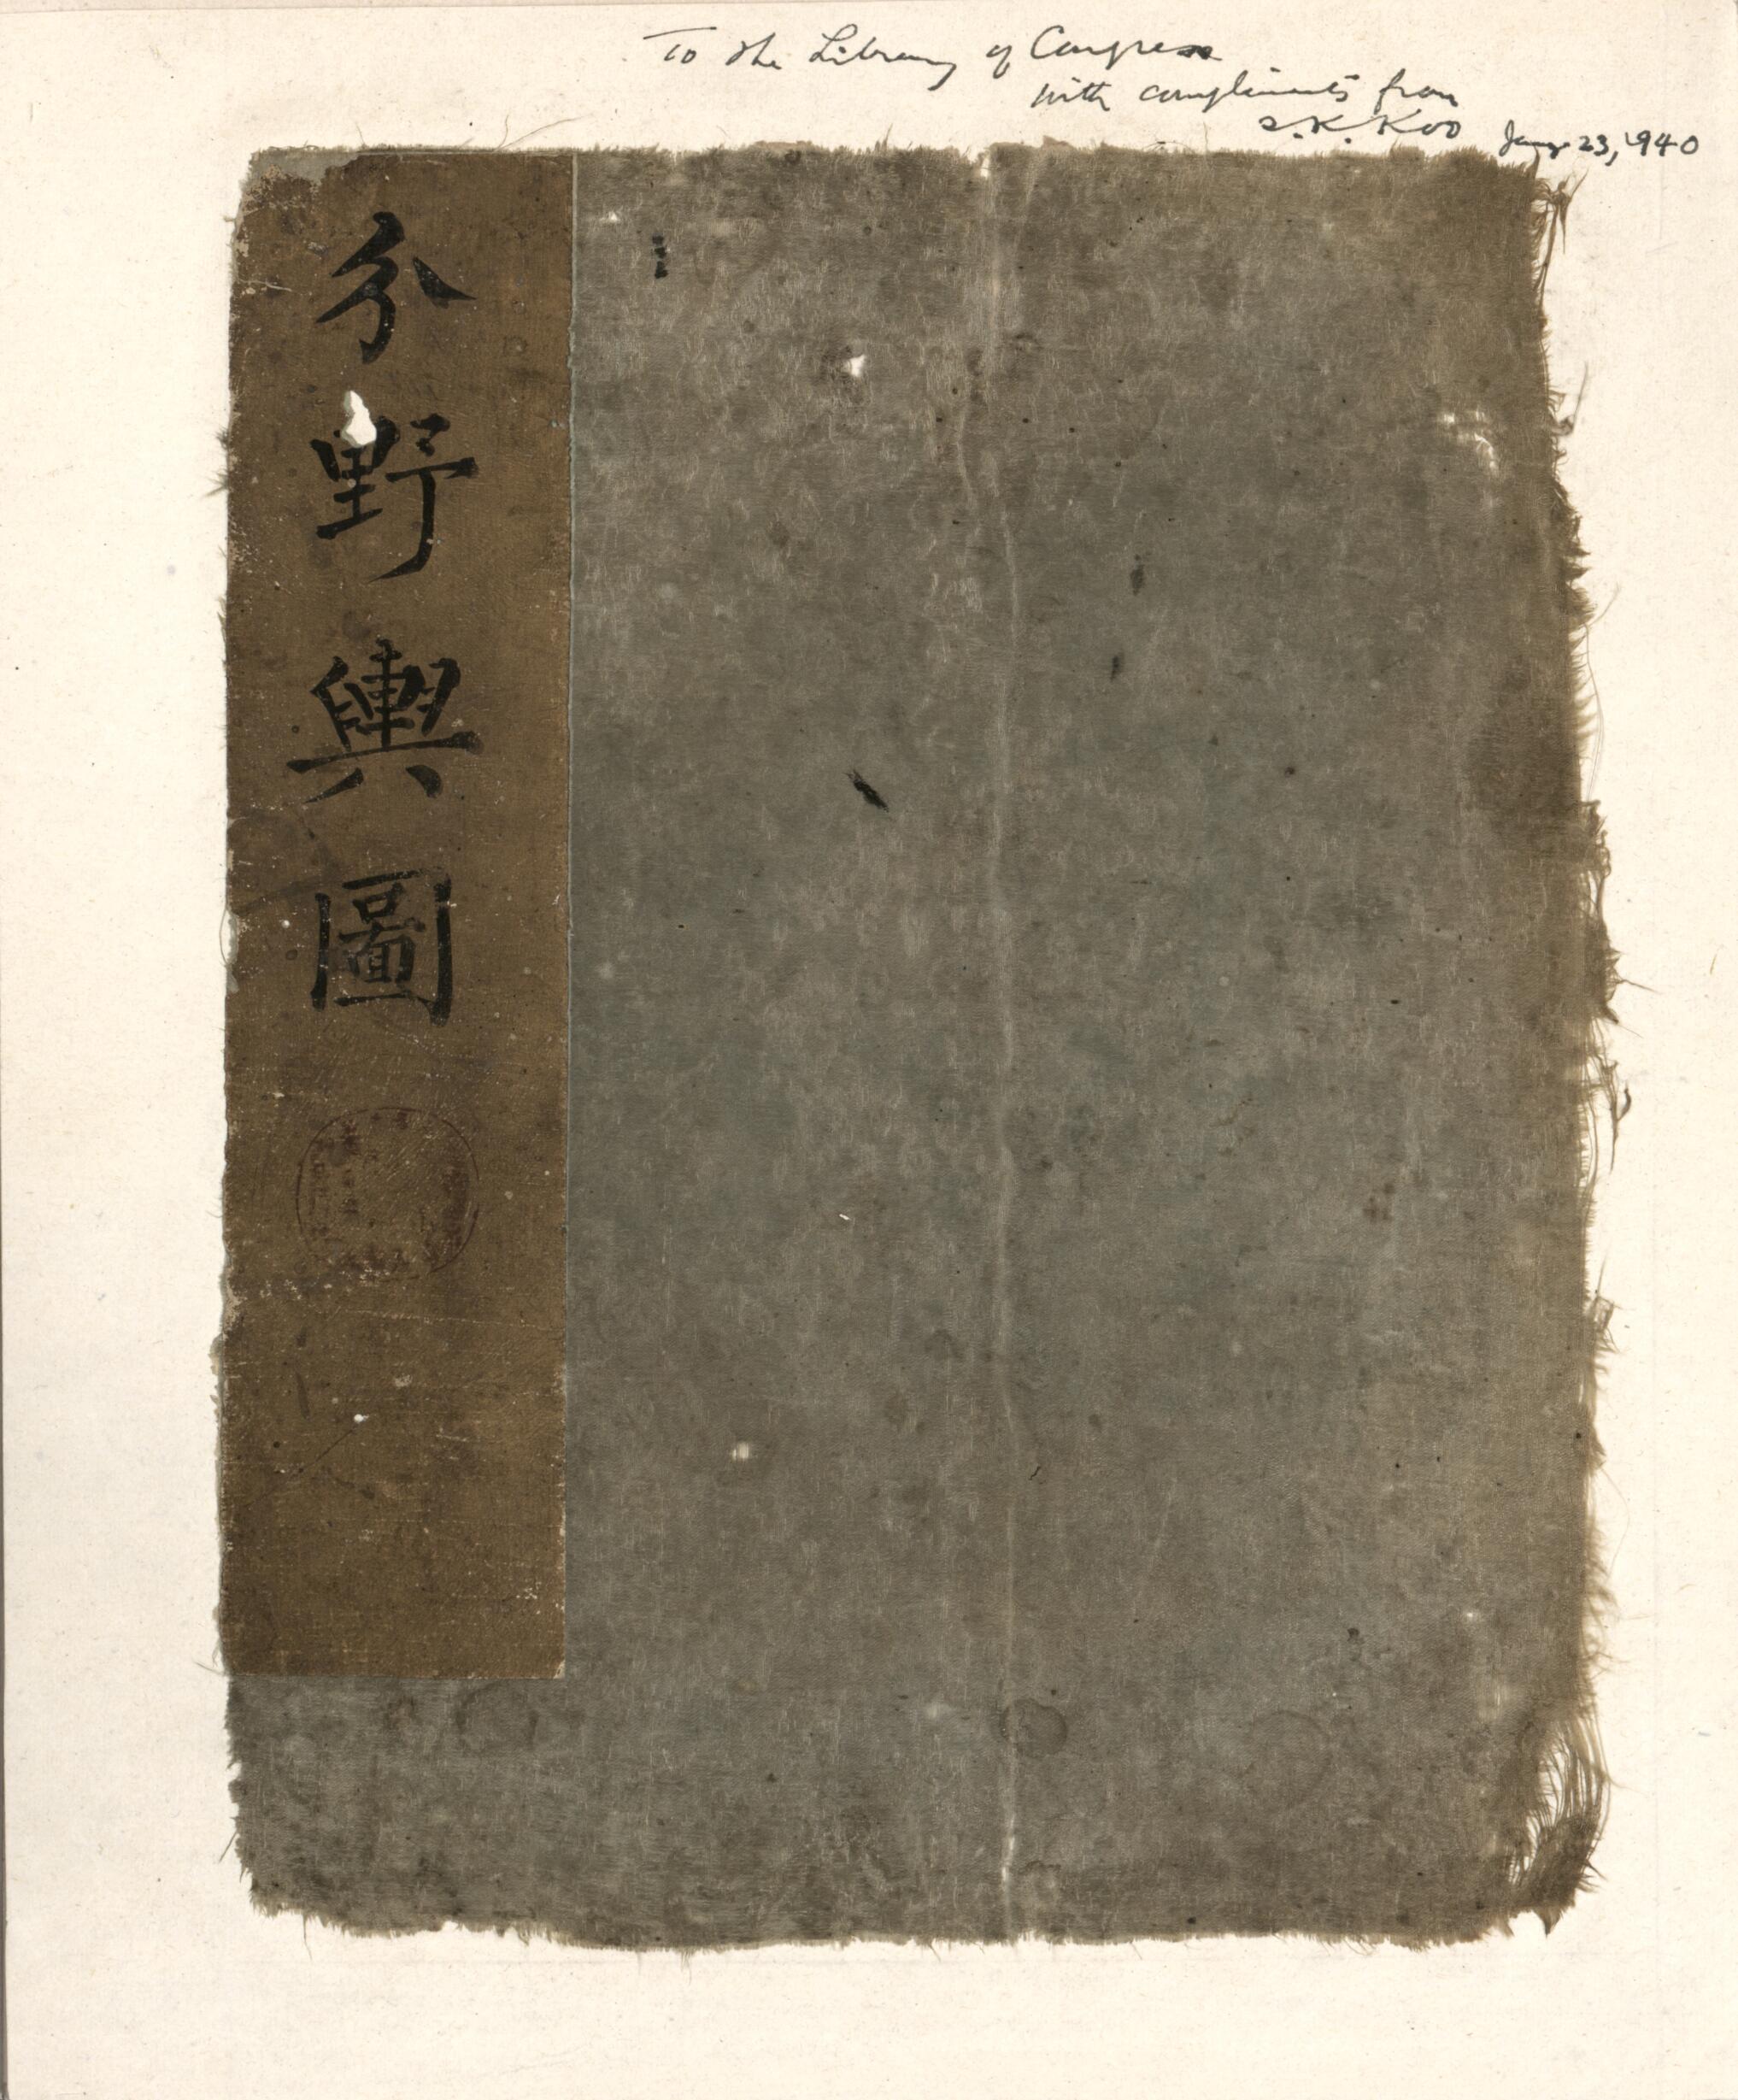 To the Library of Congress
with compliments from
S.K. Koo Jany 23, 1940
分野輿圖